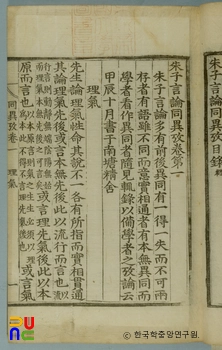 朱子言論同異攷目錄
朱子言論同異攷卷第一
朱子言論多有前後異同有一得一失而不可兩
存者有語雖不同而意實相通者有本無異同而
學者看作異同者隨見輒錄以備學者之攷論云
甲辰十月書于南塘精舍
理氣
先生論理氣性命其說不一各有所指而實相貫通
其論理氣先後或言本無先後此以流行而言也
或言理先氣後此以本
原而言也
或言氣
同異攷卷一
理氣
한국학중앙연구원